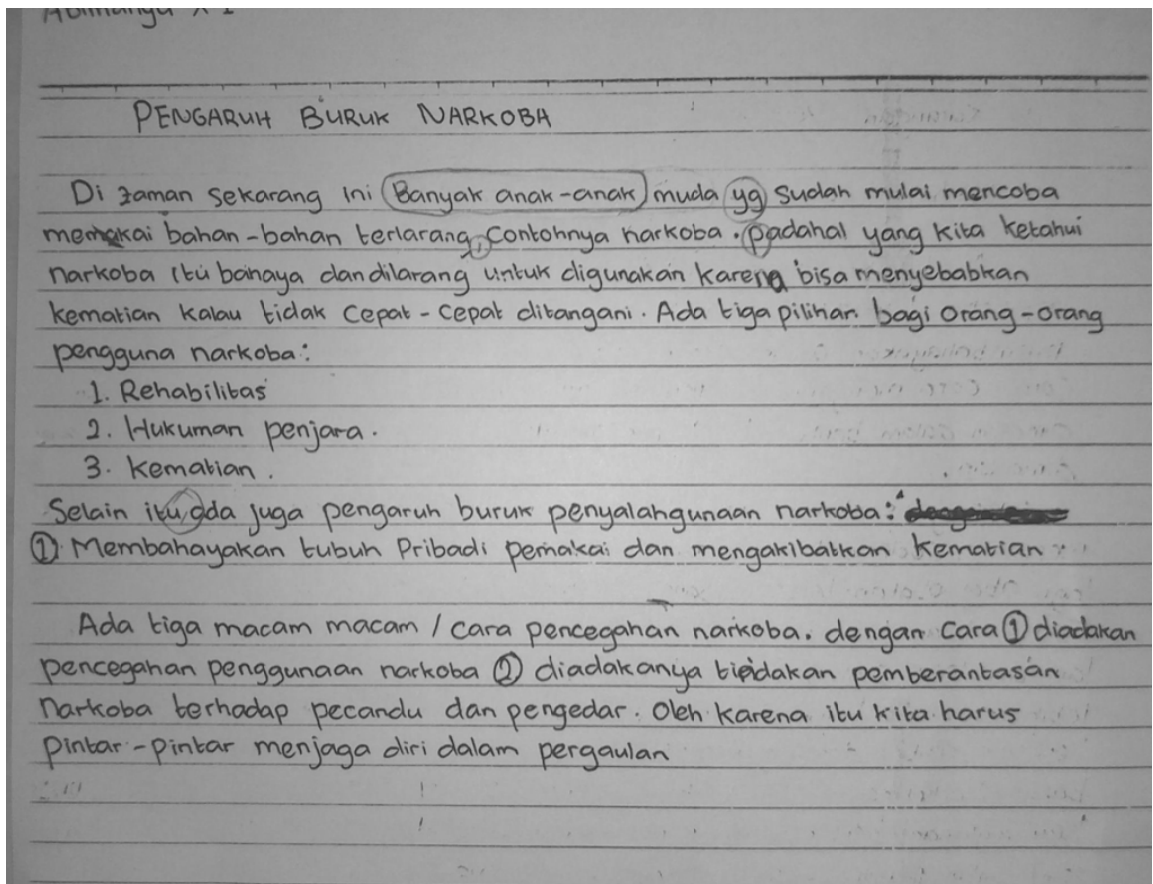 PENGARUH BURUK NARKOBA
Di zaman sekarang ini Banyak anak-anak muda yg sudah mulai mencoba
memakai bahan-bahan terlarang, Contohnya narkoba. padahal yang kita ketahui
narkoba itu bahaya dan dilarang untuk digunakan karena bisa menyebabkan
kematian kalau tidak cepat-cepat ditangani. Ada tiga pilihan bagi orang-orang
pengguna narkoba:
1. Rehabilitas
2. Hukuman penjara.
3. kematian.
Selain itu, ada juga pengaruh buruk penyalahgunaan narkoba:
① Membahayakan tubuh Pribadi pemakai dan mengakibatkan kematian
Ada tiga macam macam / cara pencegahan narkoba. dengan cara ① diadakan
pencegahan penggunaan narkoba ② diadakanya tindakan pemberantasan
narkoba terhadap pecandu dan pengedar. Oleh karena itu kita harus
pintar-pintar menjaga diri dalam pergaulan